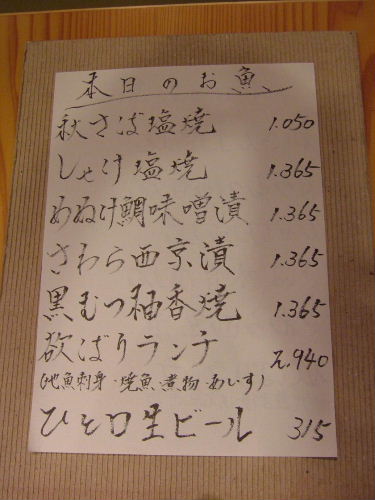 本日のお魚
秋さば塩焼 1.050
しゃけ塩焼 1.365
あぬけ鯛味噌漬 1.365
さわら西京漬 1.365
黒むつ柚香焼 1.365
欲ばりランチ 2.940
(地魚刺身・焼魚・煮物・あいす)
ひと口生ビール 315